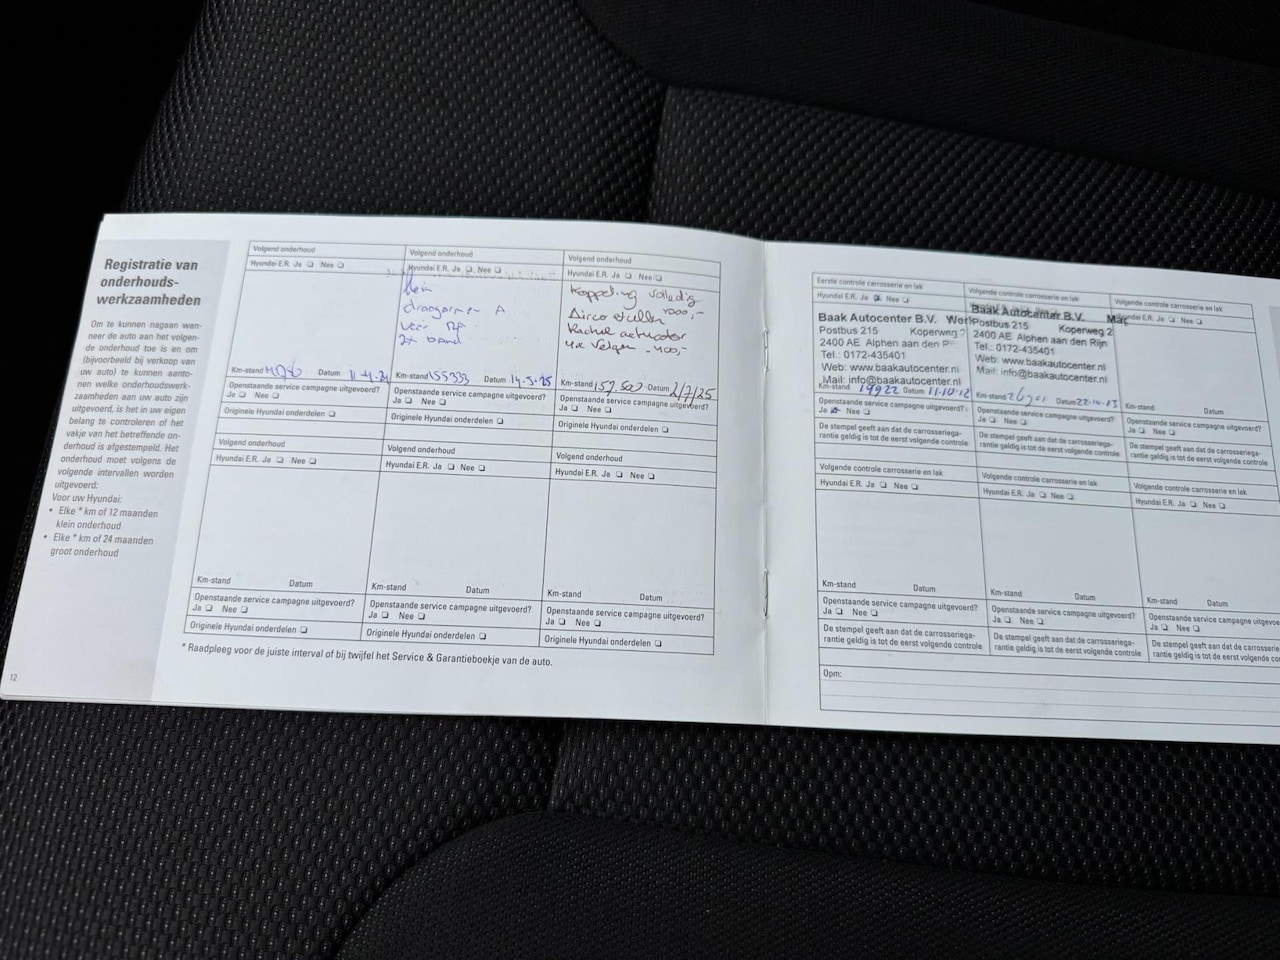 Registratie van
onderhouds-
werkzaamheden
Om te kunnen nagaan wan-
neer de auto aan het volgen-
de onderhoud toe is en om
(bijvoorbeeld bij verkoop van
uw auto) te kunnen aanto-
nen welke onderhoudswerk-
zaamheden aan uw auto zijn
uitgevoerd, is het in uw eigen
belang te controleren of het
vakje van het betreffende on-
derhoud is afgestempeld. Het
onderhoud moet volgens de
volgende intervallen worden
uitgevoerd:
Voor uw Hyundai:
• Elke * km of 12 maanden
klein onderhoud
• Elke * km of 24 maanden
groot onderhoud
12
Volgend onderhoud
Hyundai E.R. Ja ❏ Nee ❏
Km-stand Datum
Openstaande service campagne uitgevoerd?
Ja ❏ Nee ❏
Originele Hyundai onderdelen ❏
Volgend onderhoud
Hyundai E.R. Ja ❏ Nee ❏
klein
draagarmen A
2x band
Km-stand 155333 Datum 14-5-25
Openstaande service campagne uitgevoerd?
Ja ❏ Nee ❏
Originele Hyundai onderdelen ❏
Volgend onderhoud
Hyundai E.R. Ja ❏ Nee ❏
Koppeling volledig
1000,-
Airco vullen
Kachel actuator
4x velgen -400,-
Km-stand 157.500 Datum 2/7/25
Openstaande service campagne uitgevoerd?
Ja ❏ Nee ❏
Originele Hyundai onderdelen ❏
Volgend onderhoud
Hyundai E.R. Ja ❏ Nee ❏
Km-stand Datum
Openstaande service campagne uitgevoerd?
Ja ❏ Nee ❏
Originele Hyundai onderdelen ❏
Volgend onderhoud
Hyundai E.R. Ja ❏ Nee ❏
Km-stand Datum
Openstaande service campagne uitgevoerd?
Ja ❏ Nee ❏
Originele Hyundai onderdelen ❏
Volgend onderhoud
Hyundai E.R. Ja ❏ Nee ❏
Km-stand Datum
Openstaande service campagne uitgevoerd?
Ja ❏ Nee ❏
Originele Hyundai onderdelen ❏
* Raadpleeg voor de juiste interval of bij twijfel het Service & Garantieboekje van de auto.
Eerste controle carrosserie en lak
Hyundai E.R. Ja ❏ Nee ❏
Baak Autocenter B.V.
Postbus 215 Koperweg 2
2400 AE Alphen aan den R
Tel.: 0172-435401
Web: www.baakautocenter.nl
Mail: info@baakautocenter.nl
Km-stand 19922 Datum 11.10.12
Openstaande service campagne uitgevoerd?
Ja ❏ Nee ❏
De stempel geeft aan dat de carrosseriega-
rantie geldig is tot de eerst volgende controle
Volgende controle carrosserie en lak
Baak Autocenter B.V.
Postbus 215 Koperweg 2
2400 AE Alphen aan den Rijn
Tel.: 0172-435401
Web: www.baakautocenter.nl
Mail: info@baakautocenter.nl
Km-stand Datum
Openstaande service campagne uitgevoerd?
Ja ❏ Nee ❏
De stempel geeft aan dat de carrosseriega-
rantie geldig is tot de eerst volgende controle
Volgende controle carrosserie en lak
Hyundai E.R. Ja ❏ Nee ❏
Km-stand Datum
Openstaande service campagne uitgevoerd?
Ja ❏ Nee ❏
De stempel geeft aan dat de carrosseriega-
rantie geldig is tot de eerst volgende controle
Volgende controle carrosserie en lak
Hyundai E.R. Ja ❏ Nee ❏
Km-stand Datum
Openstaande service campagne uitgevoerd?
Ja ❏ Nee ❏
De stempel geeft aan dat de carrosseriega-
rantie geldig is tot de eerst volgende controle
Volgende controle carrosserie en lak
Hyundai E.R. Ja ❏ Nee ❏
Km-stand Datum
Openstaande service campagne uitgevoerd?
Ja ❏ Nee ❏
De stempel geeft aan dat de carrosseriega-
rantie geldig is tot de eerst volgende controle
Volgende controle carrosserie en lak
Hyundai E.R. Ja ❏ Nee ❏
Km-stand Datum
Openstaande service campagne uitgevoe
Ja ❏ Nee ❏
De stempel geeft aan dat de carrosserie
rantie geldig is tot de eerst volgende co
Opm: